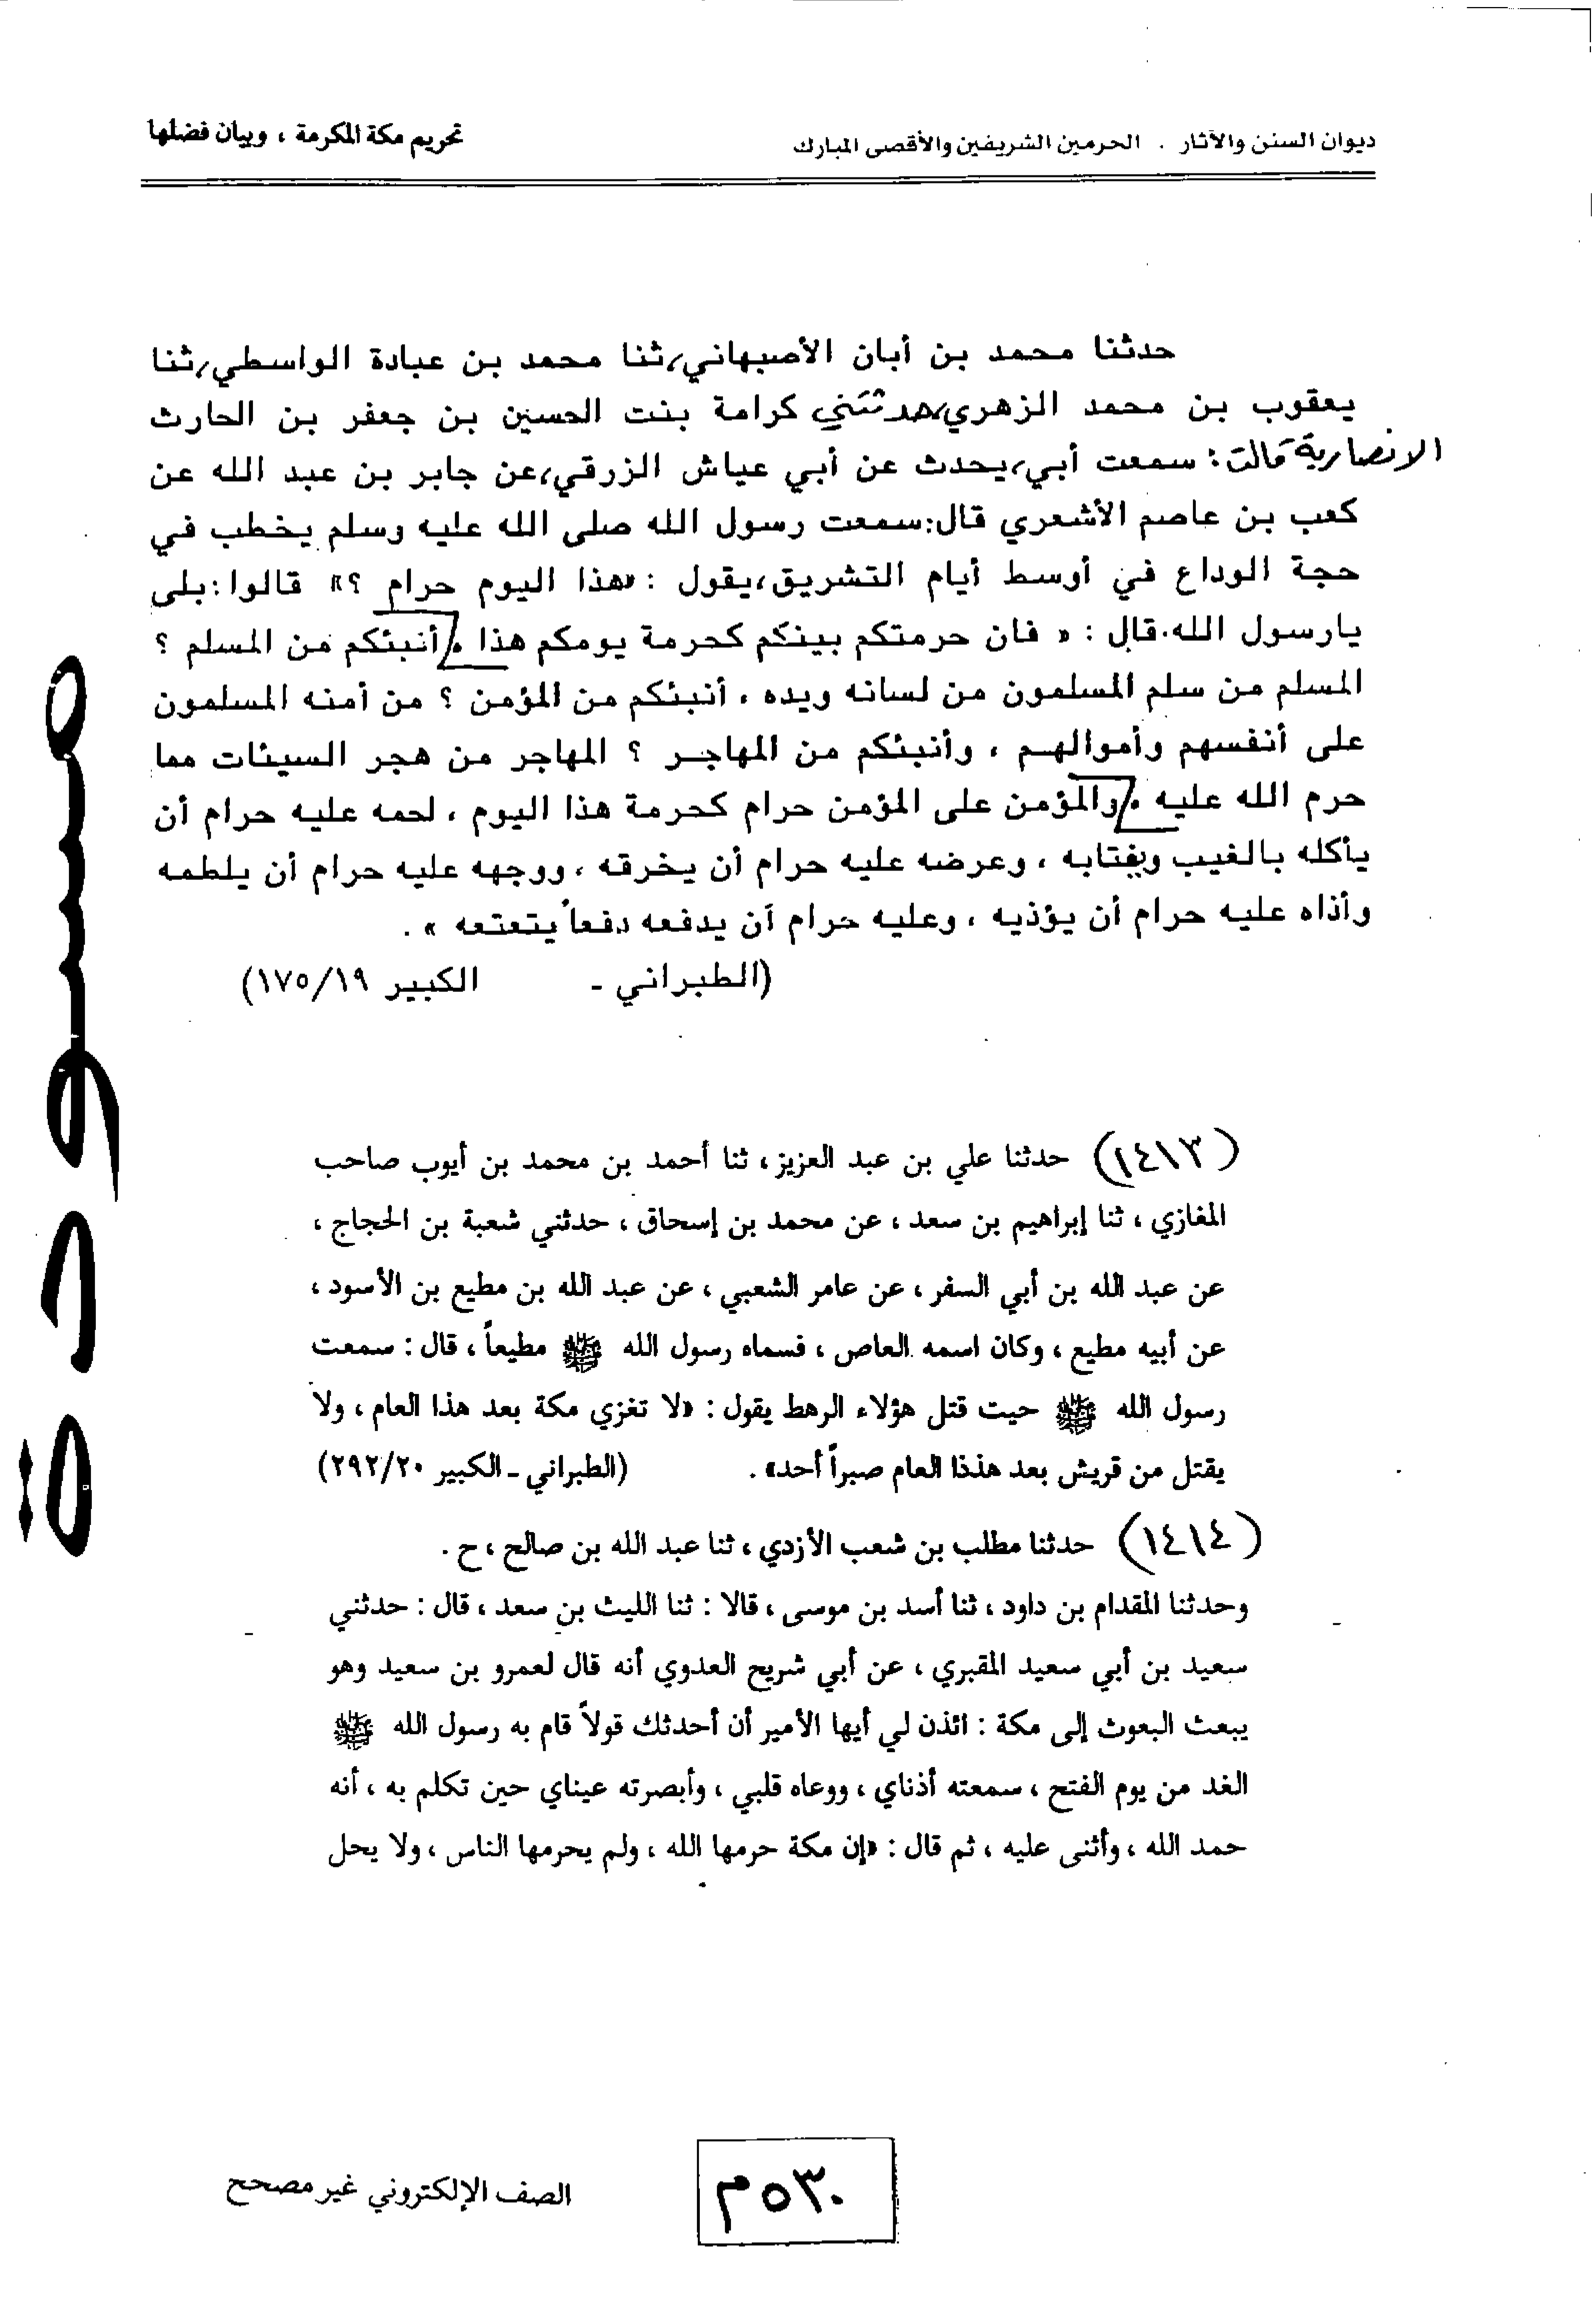 ديوان السنن والآثار . الحرمين الشريفين والأقصى المبارك
تحريم مكة المكرمة ، وبيان فضلها
حدثنا محمد بن أبان الأصبهاني، ثنا محمد بن عبادة الواسطي، ثنا
يعقوب بن محمد الزهري، حدثتني كرامة بنت الحسين بن جعفر بن الحارث
الانصارية قالت : سمعت أبي، يحدث عن أبي عياش الزرقي، عن جابر بن عبد الله عن
كعب بن عاصم الأشعري قال: سمعت رسول الله صلى الله عليه وسلم يخطب في
حجة الوداع في أوسط أيام التشريق، يقول : «هذا اليوم حرام ؟» قالوا : بلى
يارسول الله. قال : « فان حرمتكم بينكم كحرمة يومكم هذا . أنبئكم من المسلم ؟
المسلم من سلم المسلمون من لسانه ويده ، أنبئكم من المؤمن ؟ من أمنه المسلمون
على أنفسهم وأموالهم ، وأنبئكم من المهاجر ؟ المهاجر من هجر السيئات مما
حرم الله عليه . والمؤمن على المؤمن حرام كحرمة هذا اليوم ، لحمه عليه حرام أن
يأكله بالغيب ويغتابه ، وعرضه عليه حرام أن يخرقه ، ووجهه عليه حرام أن يلطمه
وأذاه عليه حرام أن يؤذيه ، وعليه حرام أن يدفعه دفعاً يتعتعه » .
(الطبراني - الكبير ١٧٥/١٩)
(١٤١٣) حدثنا علي بن عبد العزيز ، ثنا أحمد بن محمد بن أيوب صاحب
المغازي ، ثنا إبراهيم بن سعد ، عن محمد بن إسحاق ، حدثني شعبة بن الحجاج ،
عن عبد الله بن أبي السفر ، عن عامر الشعبي ، عن عبد الله بن مطيع بن الأسود ،
عن أبيه مطيع ، وكان اسمه العاص ، فسماه رسول الله ﷺ مطيعاً ، قال : سمعت
رسول الله ﷺ حيث قتل هؤلاء الرهط يقول : «لا تغزي مكة بعد هذا العام ، ولا
يقتل من قريش بعد هذذا العام صبراً أحد» . (الطبراني - الكبير ٢٩٢/٢٠)
(١٤١٤) حدثنا مطلب بن شعب الأزدي ، ثنا عبد الله بن صالح ، ح .
وحدثنا المقدام بن داود ، ثنا أسد بن موسى ، قالا : ثنا الليث بن سعد ، قال : حدثني
سعيد بن أبي سعيد المقبري ، عن أبي شريح العدوي أنه قال لعمرو بن سعيد وهو
يبعث البعوث إلى مكة : ائذن لي أيها الأمير أن أحدثك قولاً قام به رسول الله ﷺ
الغد من يوم الفتح ، سمعته أذناي ، ووعاه قلبي ، وأبصرته عيناي حين تكلم به ، أنه
حمد الله ، وأثنى عليه ، ثم قال : «إن مكة حرمها الله ، ولم يحرمها الناس ، ولا يحل
مسودة
٥٣٠م
الصف الإلكتروني غير مصحح